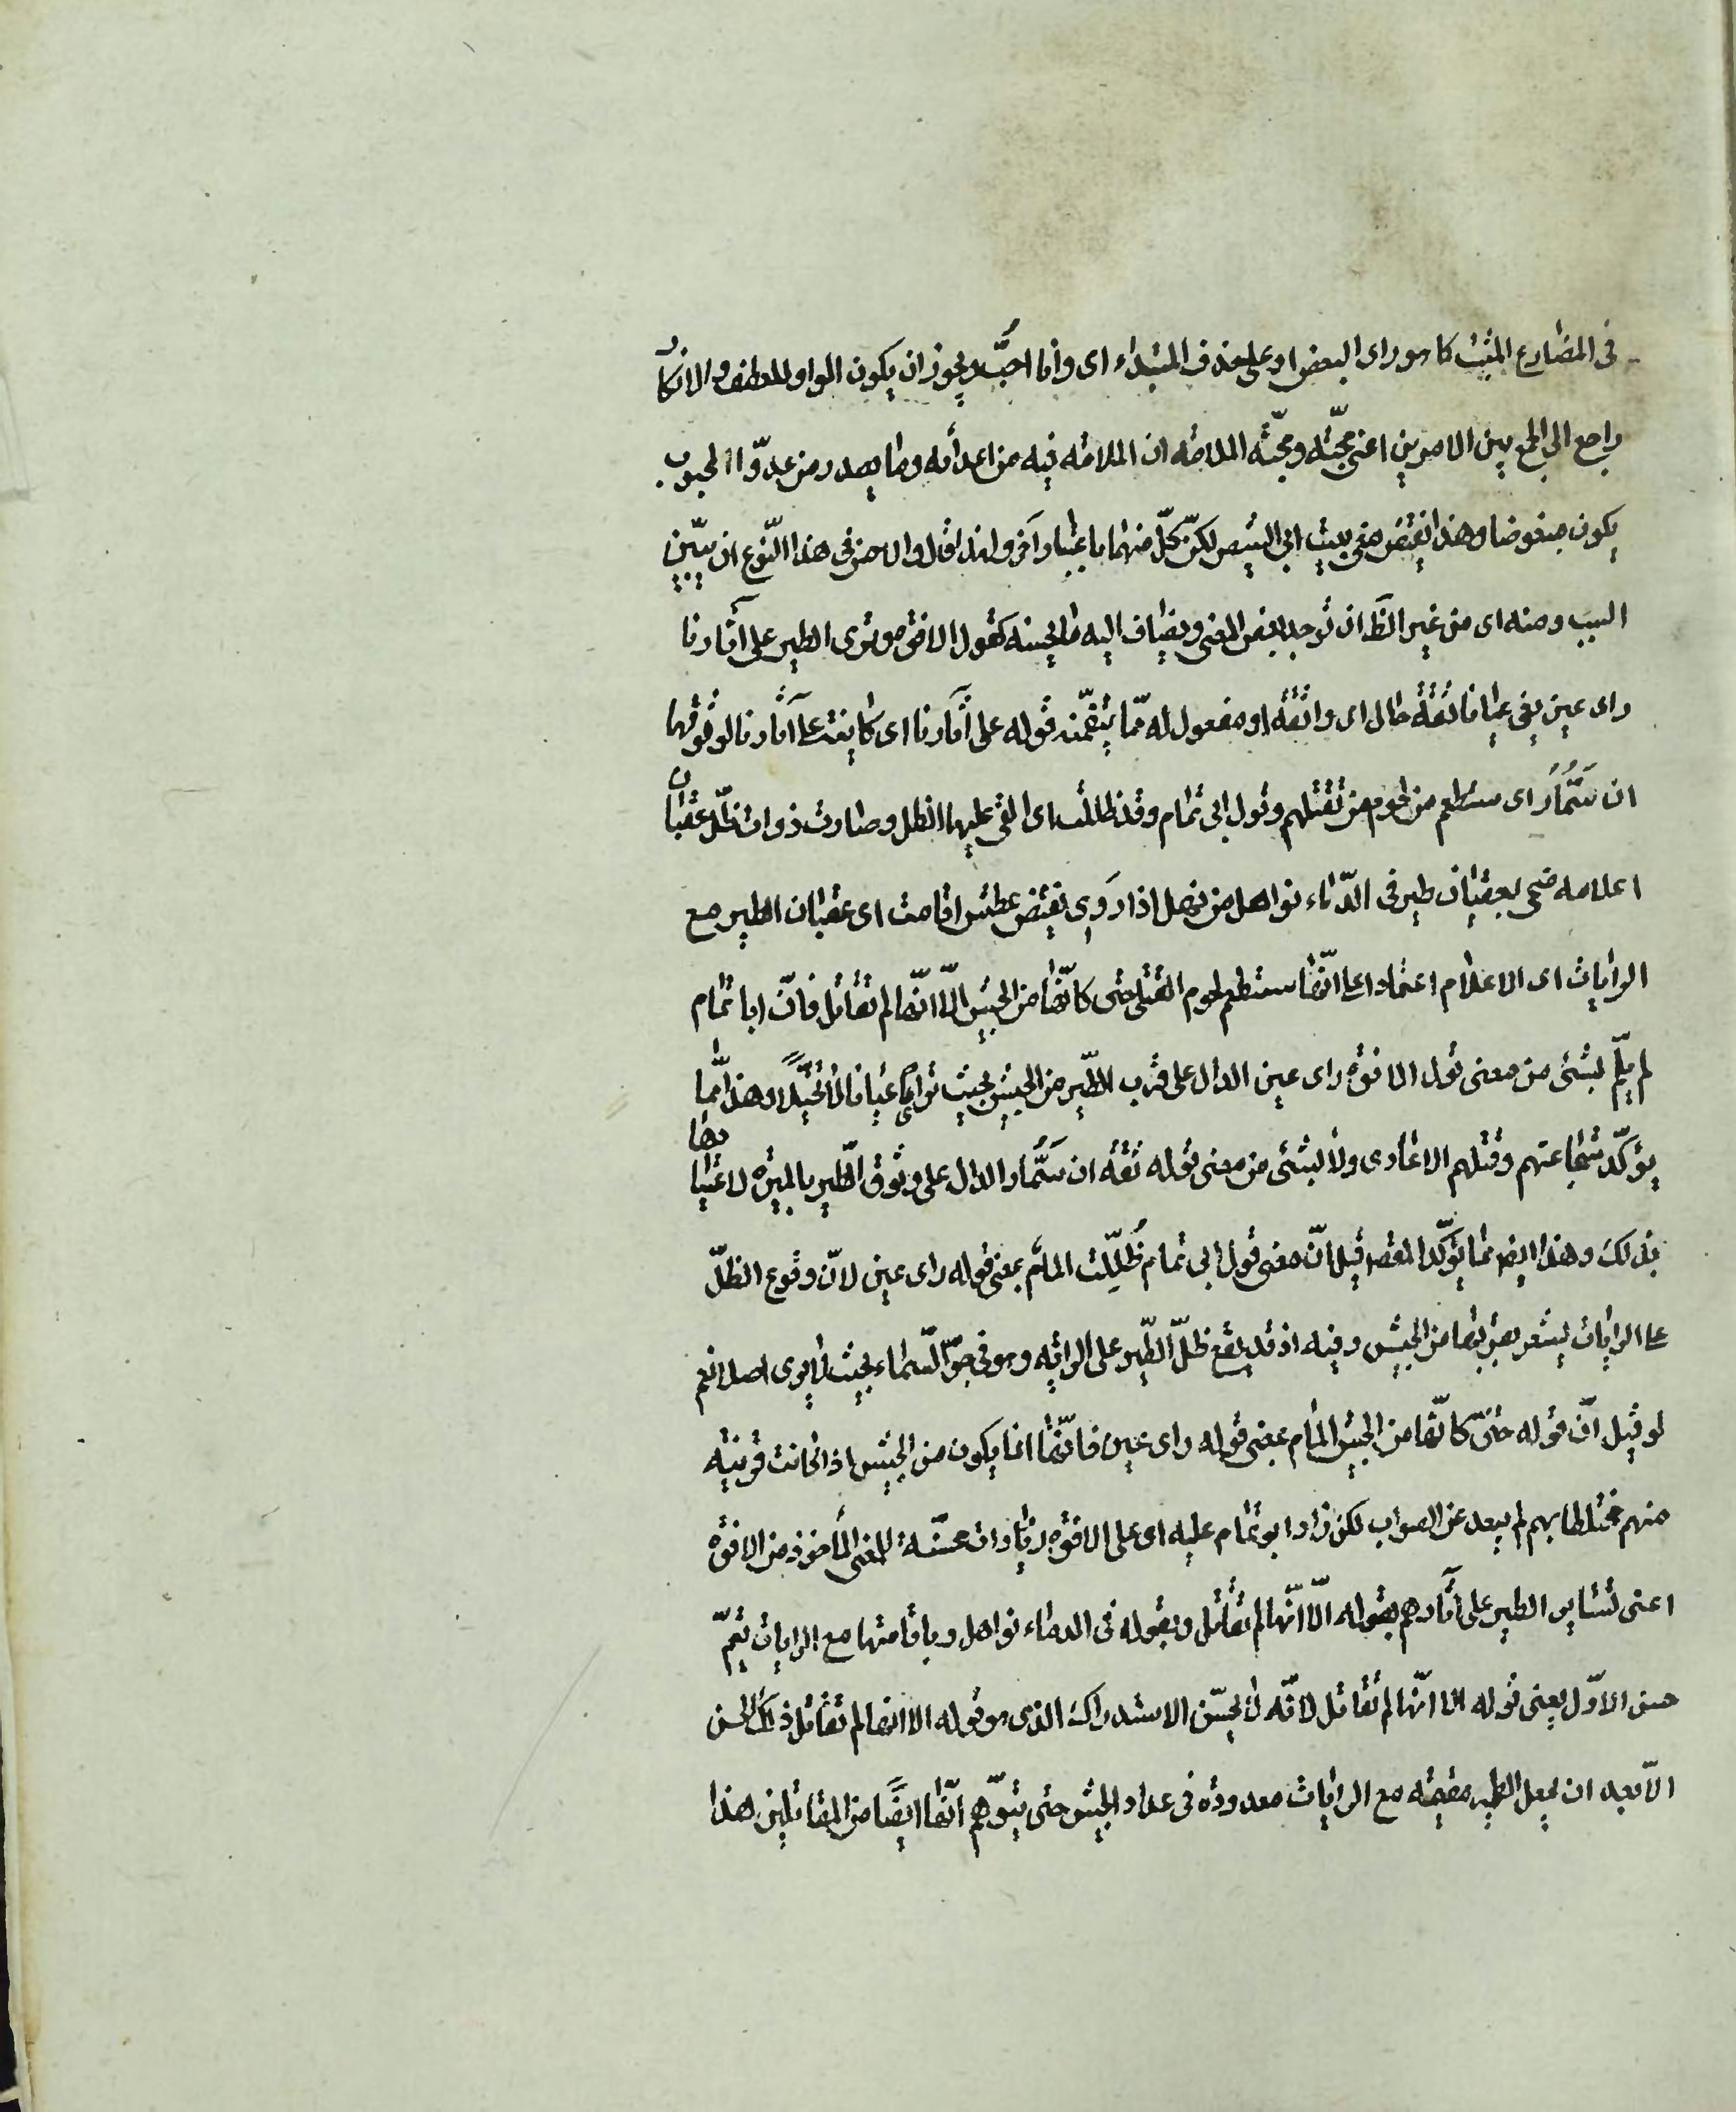 فى المضارع المثبت كما هو راى البعض او على حذف المبتداء اى وانا احبّ ويجوز ان يكون الواو للعطف والانكار
راجع الى الجمع بين الامرين اعنى محبّته ومحبّة الملامة ان الملامة فيه من اعدائه وما يصدر من عدوّ المحبوب
يكون مبغوضا وهذا نقيض معنى بيت ابى الشيص لكنّ كلّ منهما باعتبار آخر ولهذا قال والاحسن فى هذا النّوع ان يبيّن
السبب ومنه اى من غير الظّ ان يوخذ بعض المعنى ويضاف اليه ما يحسنه كقول الافوه وترى الطير على آثارنا
راى عين يعنى عيانا ثقةً حال اى واثقة او مفعول له ممّا يتضمّنه قوله على آثارنا اى كاينة على آثارنا لوثوقها
ان ستُمار اى ستطعم من لحوم من نقتلهم وقول ابى تمام وقد ظللت اى القى عليها الظل وصارت ذوات ظلّ عقبان
اعلامه ضحى بعقبان طير فى الدّماء نواهل من نهل اذا روى نقيض عطش اقامت اى عقبان الطير مع
الرايات اى الاعلام اعتمادا على انّها ستطعم لحوم القتلى حتى كانّها من الجيش الّا انّها لم تقاتل فانّ ابا تمام
لم يلمّ بشئى من معنى قول الافوه راى عين الدال على قرب الطّير من الجيش بحيث ترى عيانا لا تخيّلا وهذا ممّا
يؤكّد شجاعتهم وقتلهم الاعادى ولا بشئى من معنى قوله ثقة ان ستُمار الدال على وثوق الطّير بالميرة لاعتيادها
بذلك وهذا ايضا ممّا يؤكّد المقص قيل انّ معنى قول ابى تمام ظُلّلت المامٌ بمعنى قوله راى عين لانّ وقوع الظلّ
على الرايات يشعر بقربها من الجيش وفيه اذ قد يقع ظلّ الطّير على الراية وهو فى جوّ السّماء بحيث لا يرى اصلا نعم
لو قيل انّ قوله حتّى كانّها من الجيش المام بمعنى قوله راى عين فانّها انما يكون من الجيش اذا كانت قريبة
منهم مختلطا بهم لم يبعد عن الصواب لكن زاد ابو تمام عليه اى على الافوه زيادات محسّنة للمعنى المأخوذ من الافوه
اعنى تساير الطير على آثارهم بقوله الّا انّها لم تقاتل وبقوله فى الدماء نواهل وباقامتها مع الرايات يتمّ
حسن الاوّل يعنى قوله الا انّها لم تقاتل لانّه لا يحسّن الاستدراك الذى هو قوله الا انها لم تقاتل ذلك الحسن
الّا بعد ان يجعل الطير مقيمة مع الرايات معدودة فى عداد الجيش حتى يتوّهم انّها ايضا من المقاتلين هذا